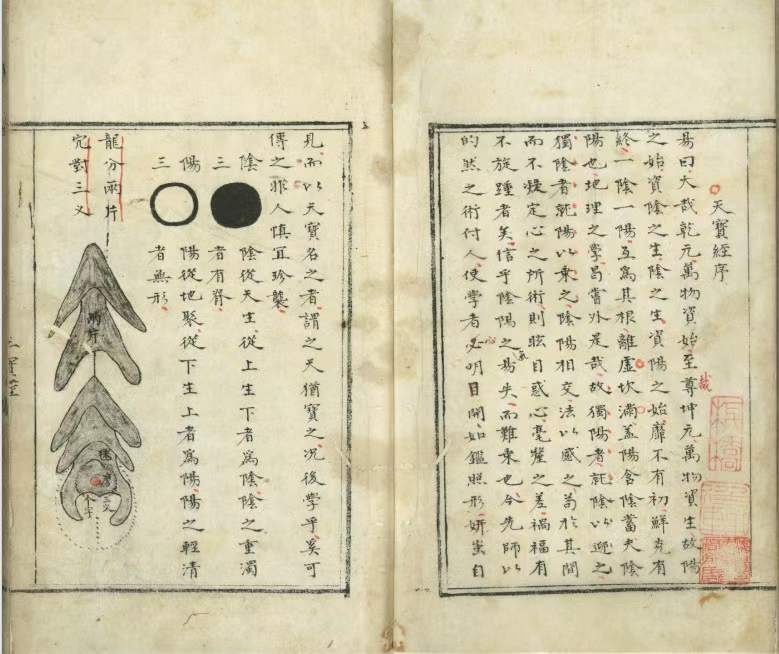 天寶經序
易曰大哉乾元萬物資始至哉尊坤元萬物資生故陽
之始資陰之生陰之生資陽之始靡不有初鮮克有
終一陰一陽互為其根離虛坎滿盖陽含陰蓄夫陰
陽也地理之學曷嘗外是哉故獨陽者託陰以迎之
獨陰者託陽以乘之陰陽相交法以感之苟於其間
而不凝定心之所術則眩目惑心毫釐之差禍福有
不旋踵者矣信乎陰陽之氣易失而難乘也今先師以
的然之術付人使學者心必明目開如鑑照形妍蚩自
見而以天寶名之者謂之天猶寶之况後學乎奚可
傳之非人慎宜珍襲
陰三 陰從天生從上生下者為陰陰之重濁
者有脊
陽三 陽從地聚從下生上者為陽陽之輕清
者無形
龍分兩片
穴對三义
兩片
三义